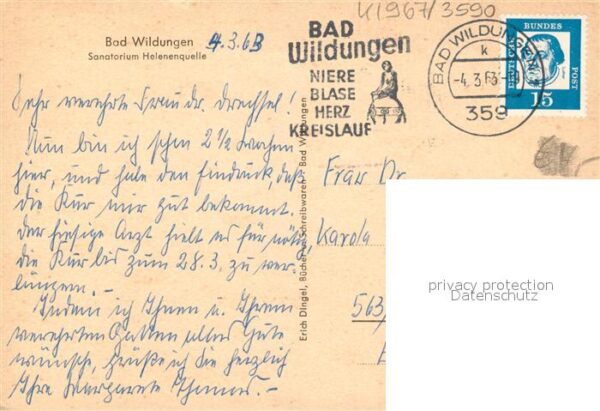 K1967/3590
Bad Wildungen 4.3.63
Sanatorium Helenenquelle
BAD
Wildungen
NIERE
BLASE
HERZ
KREISLAUF
BAD WILDUNGEN
k
-4.3.63
359
DEUTSCHE
BUNDES
POST
15
Sehr verehrte Frau Dr. Drechsel!
Nun bin ich schon 2 1/2 Wochen
hier, und habe den Eindruck, daß
die Kur mir gut bekommt.
Der hiesige Arzt hielt es für nötig,
die Kur bis zum 28.3. zu ver-
längern. -
Indem ich Ihnen u. Ihrem
verehrten Gatten alles Gute
wünsche, grüße ich Sie herzlich
Ihre Margarete Thomas. -
Erich Dingel, Bücher u. Schreibwaren - Bad Wildungen
Frau Dr.
Karola
563
privacy protection
Datenschutz